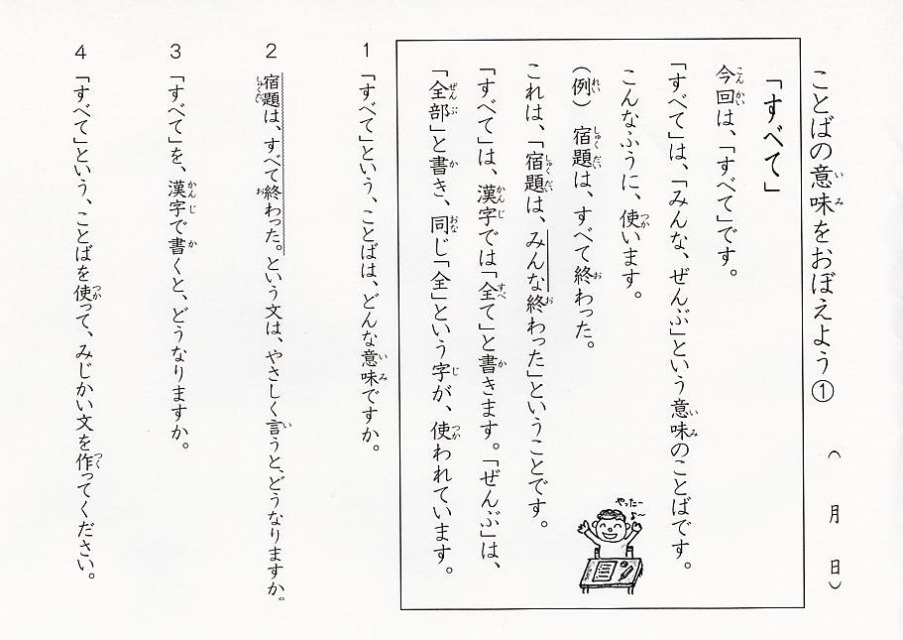 ことばの意味をおぼえよう①　（　月　日）
「すべて」
今回は、「すべて」です。
「すべて」は、「みんな、ぜんぶ」という意味のことばです。
こんなふうに、使います。
（例）　宿題は、すべて終わった。
これは、「宿題は、みんな終わった」ということです。
「すべて」は、漢字では「全て」と書きます。「ぜんぶ」は、
「全部」と書き、同じ「全」という字が、使われています。
やったー
1　「すべて」という、ことばは、どんな意味ですか。
2　宿題は、すべて終わった。という文は、やさしく言うと、どうなりますか。
3　「すべて」を、漢字で書くと、どうなりますか。
4　「すべて」という、ことばを使って、みじかい文を作ってください。